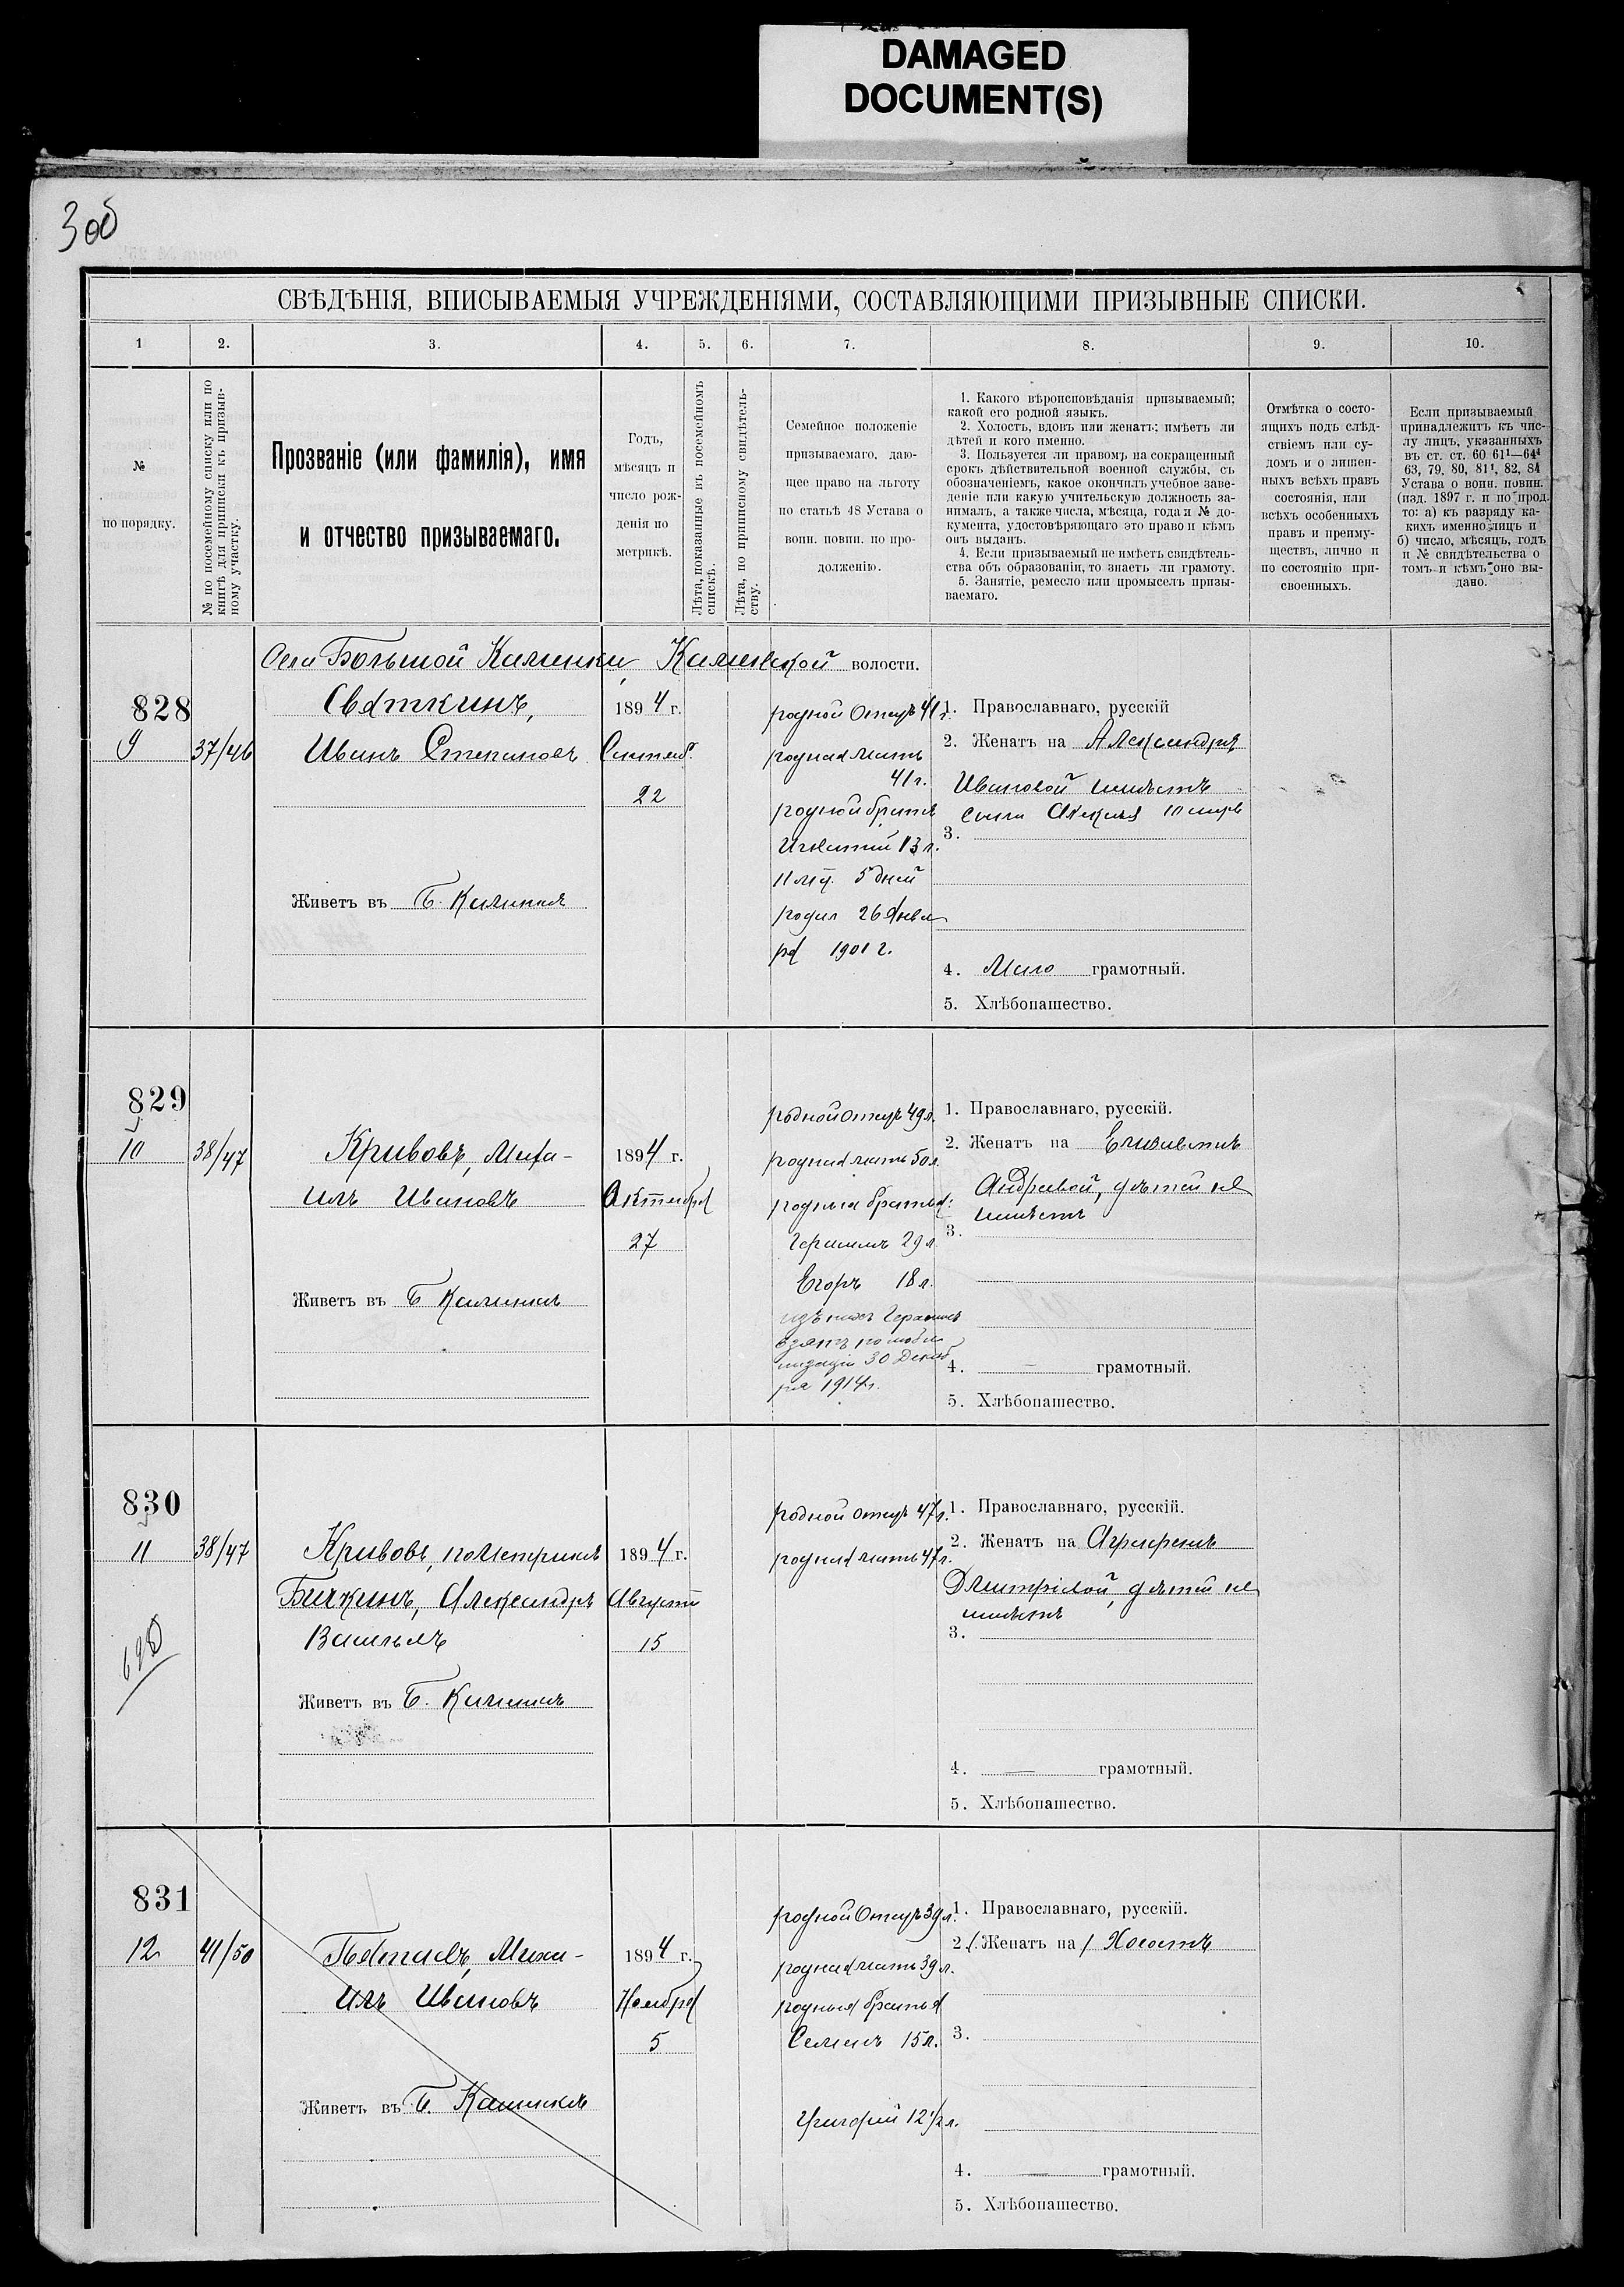 DAMAGED
DOCUMENT(S)
3 об
СВѢДѢНІЯ, ВПИСЫВАЕМЫЯ УЧРЕЖДЕНІЯМИ, СОСТАВЛЯЮЩИМИ ПРИЗЫВНЫЕ СПИСКИ.
1 2. 3. 4. 5. 6. 7. 8. 9. 10.
№
по порядку.
№ по посемейному списку или по
книгѣ для приписки къ призыв-
ному участку.
Прозваніе (или фамилія), имя
и отчество призываемаго.
Годъ,
мѣсяцъ и
число рож-
денія по
метрикѣ.
Лѣта, показанные въ посемейномъ
спискѣ.
Лѣта, по приписному свидѣтель-
ству.
Семейное положеніе
призываемаго, даю-
щее право на льготу
по статьѣ 48 Устава о
воин. повин. по про-
долженію.
1. Какого вѣроисповѣданія призываемый;
какой его родной языкъ.
2. Холостъ, вдовъ или женатъ: имѣетъ ли
дѣтей и кого именно.
3. Пользуется ли правомъ на сокращенный
срокъ дѣйствительной военной службы, съ
обозначеніемъ, какое окончилъ учебное заве-
деніе или какую учительскую должность за-
нималъ, а также числа, мѣсяца, года и № до-
кумента, удостовѣряющаго это право и кѣмъ
онъ выданъ.
4. Если призываемый не имѣетъ свидѣтель-
ства объ образованіи, то знаетъ ли грамоту.
5. Занятіе, ремесло или промыселъ призы-
ваемаго.
Отмѣтка о состо-
ящихъ подъ слѣд-
ствіемъ или су-
домъ и о лишен-
ныхъ всѣхъ правъ
состоянія, или
всѣхъ особенныхъ
правъ и преиму-
ществъ, лично и
по состоянію при-
своенныхъ.
Если призываемый
принадлежитъ къ чис-
лу лицъ, указанныхъ
въ ст. ст. 60 61¹—64⁴
63, 79, 80, 81¹, 82, 84
Устава о воин. повин.
(изд. 1897 г. и по прод.
то: а) къ разряду ка-
кихъ именно лицъ и
б) число, мѣсяцъ, годъ
и № свидѣтельства о
томъ и кѣмъ оно вы-
дано.
Села Большой Каменки, Каменской волости.
828
9
37/46
Святкинъ,
Иванъ Степановъ
Живетъ въ Б. Каменкѣ
1894 г.
Сентяб.
22
родной отецъ 41 г.
родная мать
41 г.
родной братъ
Игнатій 13 л.
11 мц. 5 дней
родил 26 Янва
ря 1901 г.
1. Православнаго, русскій
2. Женатъ на Александрѣ
Ивановой имѣетъ
сына Алексѣя
3.
4. Мало грамотный.
5. Хлѣбопашество.
829
10
38/47
Кривовъ, Миха-
илъ Ивановъ
Живетъ въ Б Каменкѣ
1894 г.
Октября
27
родной отецъ 49 л.
родная мать 50 л.
родные братья:
Герасимъ 29 л.
Егоръ 18 л.
изъ нихъ Герасимъ
взятъ по моби
лизаціи 30 Декаб
ря 1914 г.
1. Православнаго, русскій.
2. Женатъ на Елизаветѣ
Андреевой, дѣтей не
имѣетъ
3.
4. — грамотный.
5. Хлѣбопашество.
830
11
38/47
Кривовъ, по метрикѣ
Бичкинъ, Александръ
Васильевъ
Живетъ въ Б. Каменкѣ
1894 г.
Августа
15
родной отецъ 47 л.
родная мать 47 л.
1. Православнаго, русскій.
2. Женатъ на Аграфенѣ
Дмитріевой, дѣтей не
имѣетъ
3.
4. — грамотный.
5. Хлѣбопашество.
831
12
41/50
Пятаевъ, Миха-
илъ Ивановъ
Живетъ въ Б. Каменкѣ
1894 г.
Ноября
5
родной отецъ 39 л.
родная мать 39 л.
родные братья
Семенъ 15 л.
Григорій 12 1/2 л.
1. Православнаго, русскій.
2. (Женатъ на) Холостъ
3.
4. — грамотный.
5. Хлѣбопашество.